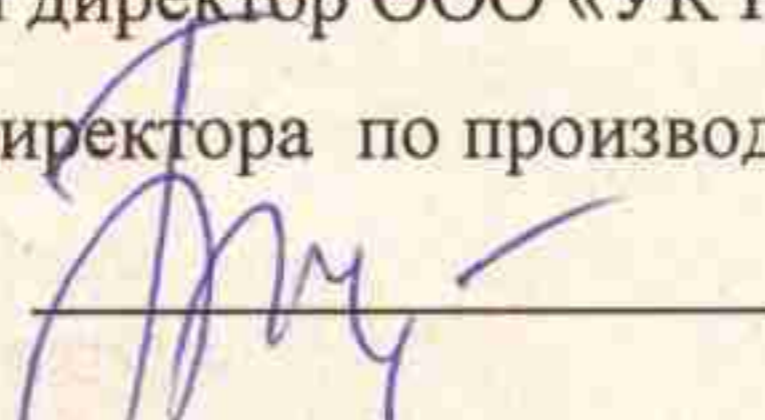 директор ООО «УК
иректора по производ